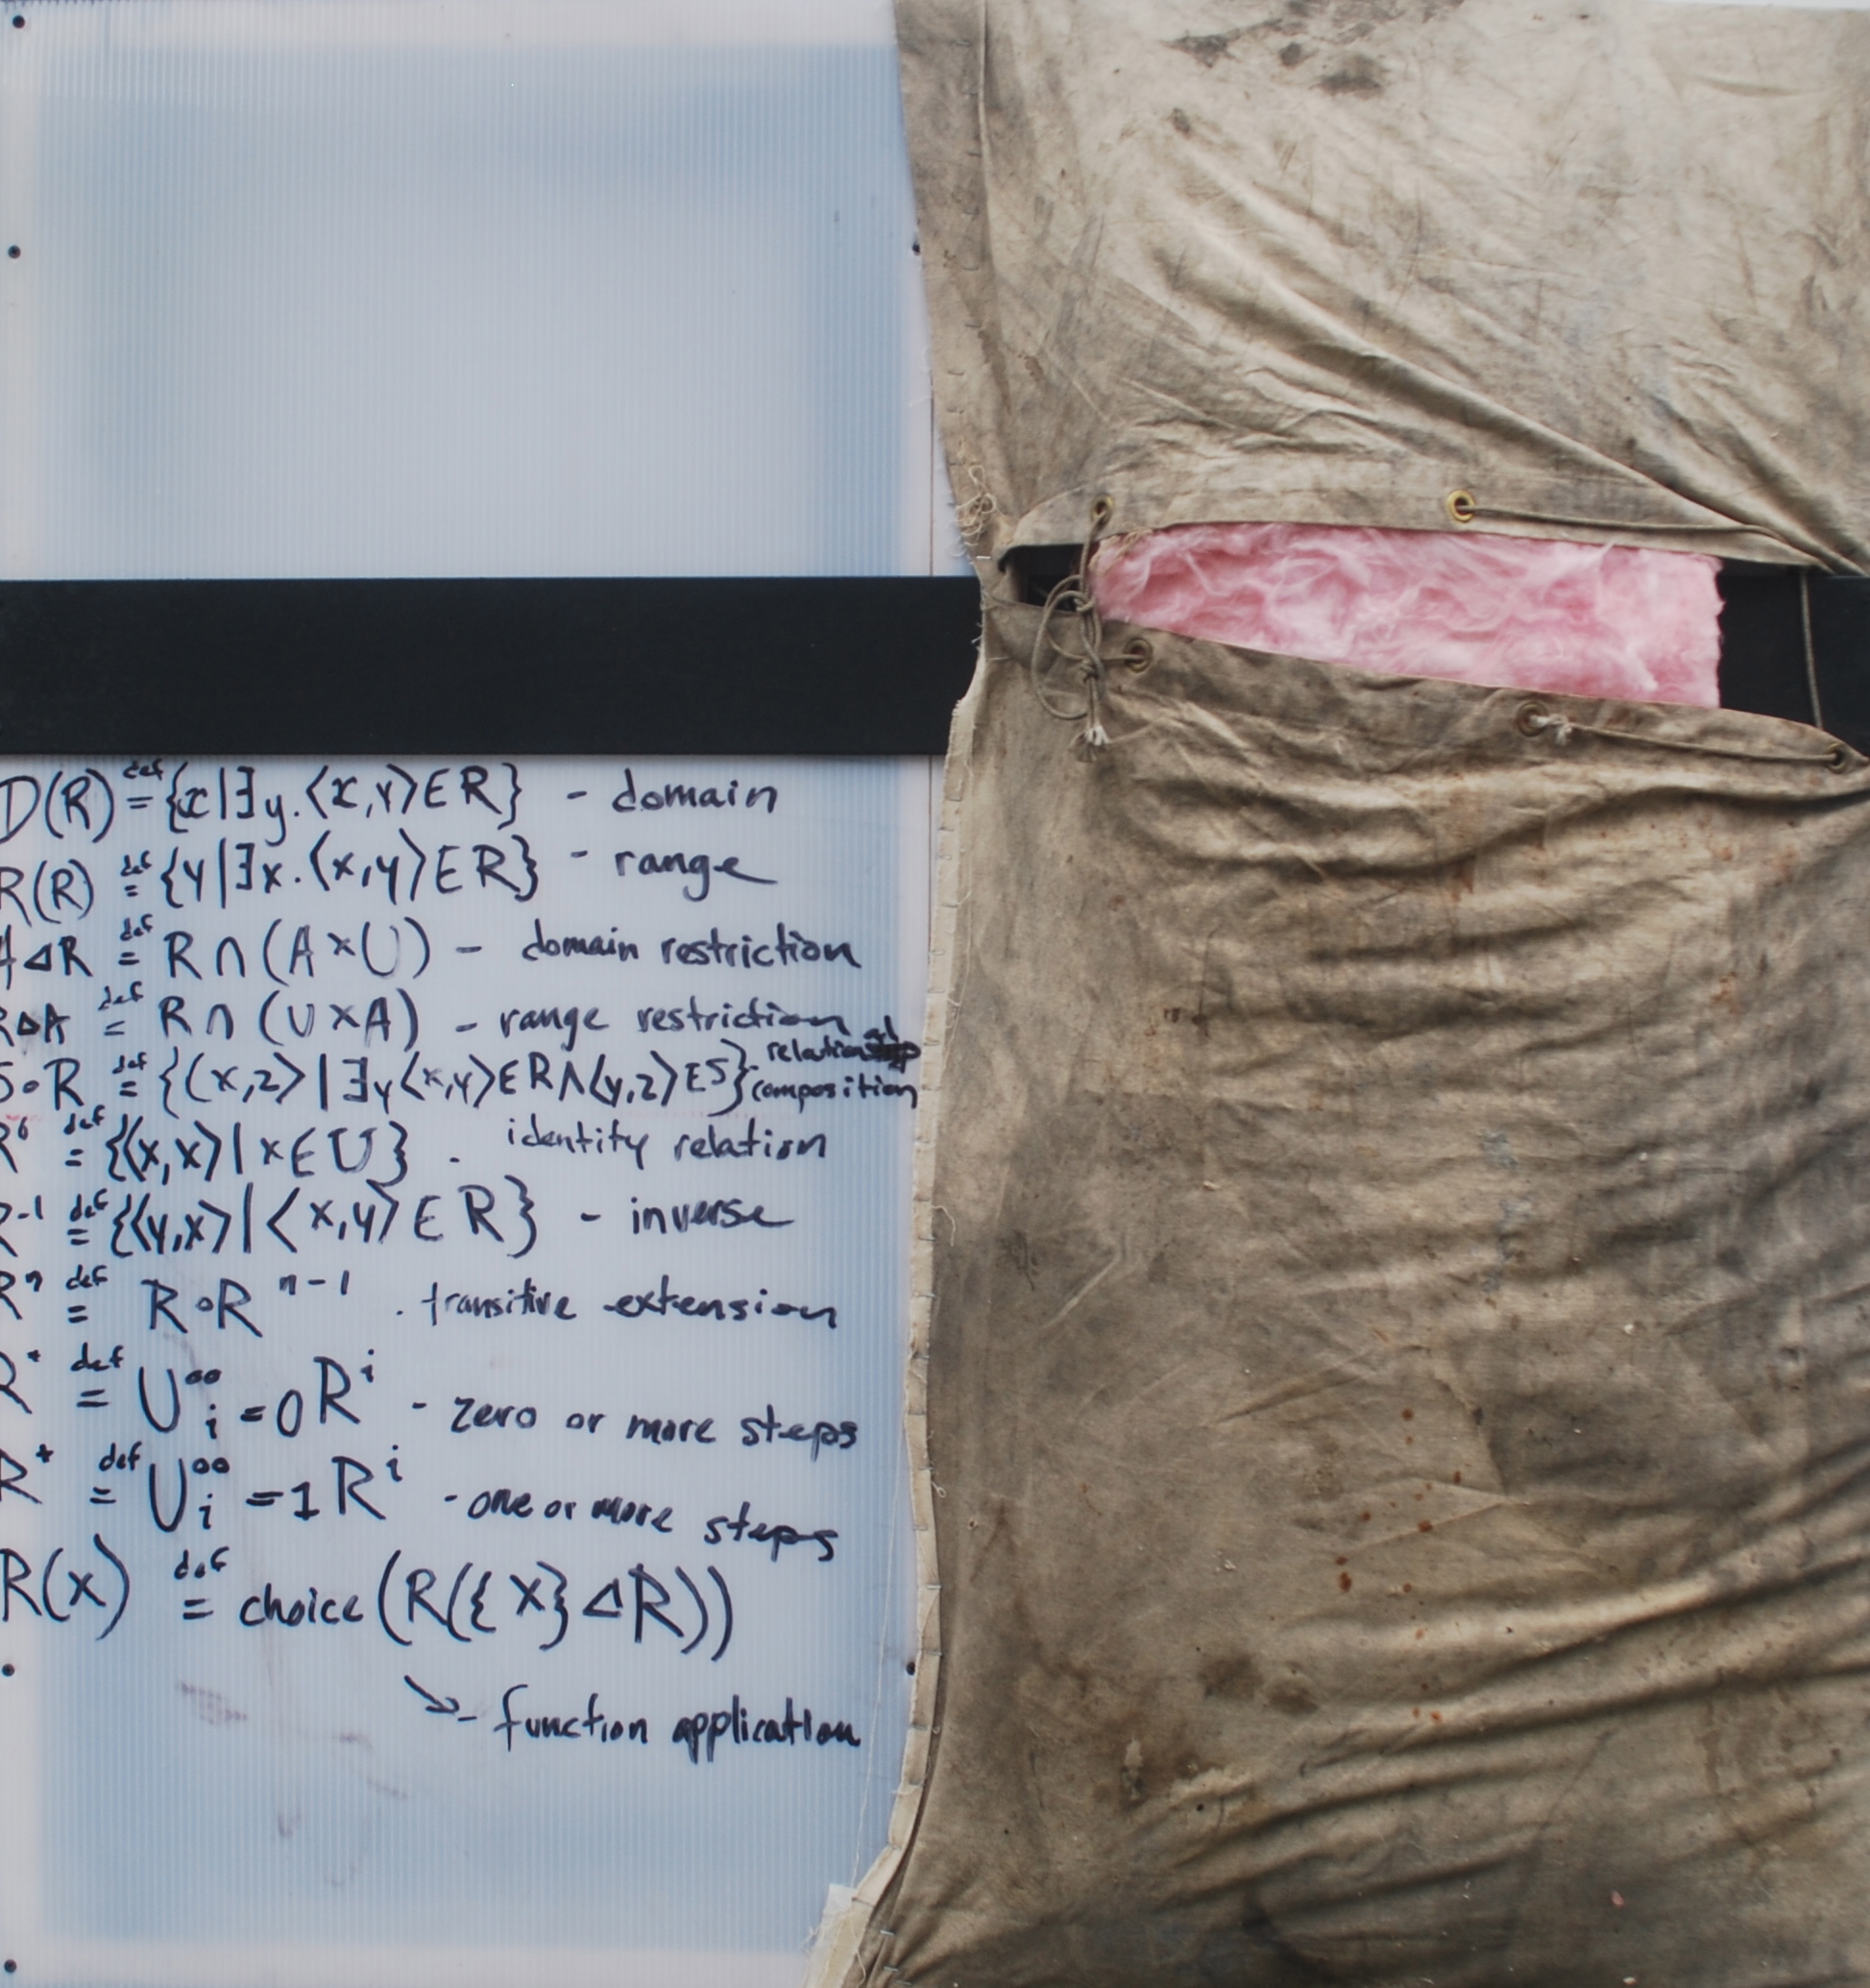 D(R) def= {x|∃y.⟨x,y⟩∈R} - domain
R(R) def= {y|∃x.⟨x,y⟩∈R} - range
A⊲R def= R∩(A×U) - domain restriction
R∆A def= R∩(U×A) - range restriction
S∘R def= {⟨x,z⟩|∃y⟨x,y⟩∈R∧⟨y,z⟩∈S} - relational composition
R⁰ def= {⟨x,x⟩|x∈U} . identity relation
R⁻¹ def= {⟨y,x⟩|⟨x,y⟩∈R} - inverse
Rⁿ def= R∘Rⁿ⁻¹ . transitive extension
R* def= ∪^∞ᵢ=0 Rⁱ - zero or more steps
R⁺ def= ∪^∞ᵢ=1 Rⁱ - one or more steps
R(x) def= choice(R({x}⊲R))
↘ - function application